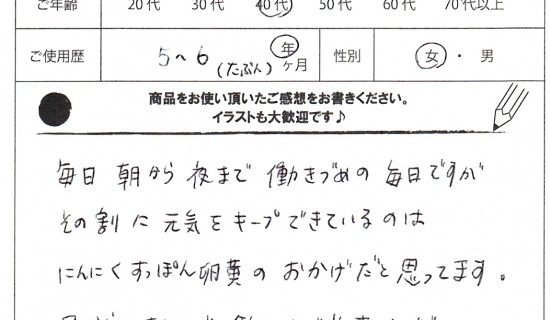 ご年齢 20代 30代 40代 50代 60代 70代以上
ご使用歴 5~6(たぶん) 年 ヶ月 性別 女・男
商品をお使い頂いたご感想をお書きください。
イラストも大歓迎です♪
毎日 朝から 夜まで 働きづめの 毎日ですが
その割に 元気を キープできているのは
にんにくすっぽん卵黄の おかげだと 思ってます。